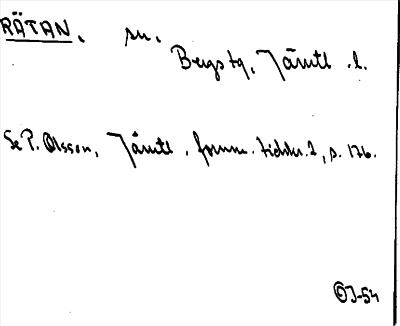 RÄTAN. sn.
Bergs tg, Jämtl. l.
Se P. Olsson, Jämtl. fornm. tidskr. 2, s. 176.
OJ-54